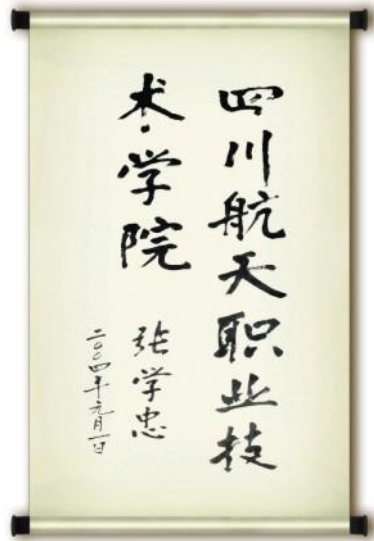 四川航天职业技
术学院
张学忠
二〇〇四年元月一日